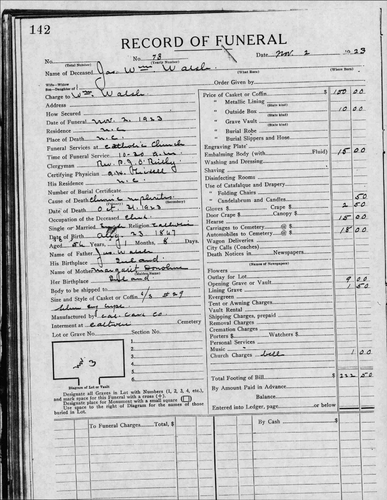 142
RECORD OF FUNERAL
No. No. 73 Date Nov. 2 1923
(Total Number) (Yearly Number)
Name of Deceased Jas. Wm Walsh
Charge to Wm Walsh
Address
How Secured
Date of Funeral Nov. 2, 1923
Residence N.C.
Place of Death N.C.
Funeral Services at Catholic Church
Time of Funeral Service 10:30 a.m.
Clergyman Rev. P.J. O'Reilly
Certifying Physician
His Residence N.C.
Number of Burial Certificate
Cause of Death Chronic Nephritis
Date of Death Oct. 31, 1923
Occupation of the Deceased Clerk
Single or Married Religion Catholic
Date of Birth 23 1867
Aged 56 Years Months 8 Days
Name of Father Jas. Walsh
His Birthplace Ireland
Name of Mother Margaret Donohue
Her Birthplace Ireland
Body to be shipped to
Size and Style of Casket or Coffin 6/3 #29
Manufactured by Cal. Cas. Co.
Interment at Catholic Cemetery
Lot or Grave No. Section No.
No 3
1.
2.
3.
4.
5.
6.
Diagram of Lot or Vault
Designate all Graves in Lot with Numbers (1, 2, 3, 4, etc.),
and mark space for this Funeral with a cross (+).
Designate place for Monument with a small square
Use space to the right of Diagram for the names of those
buried in Lot.
To Funeral Charges, Total
Order Given by
Price of Casket or Coffin $ 150 00
" Metallic Lining
(State kind)
" Outside Box 10 00
(State kind)
" Grave Vault
(State kind)
" Burial Robe
(State kind)
" Burial Slippers and Hose
Engraving Plate
Embalming Body (with Fluid) 15 00
Washing and Dressing
Shaving
Disinfecting Rooms
Use of Catafalque and Drapery
" Folding Chairs
" Candelabrum and Candles 50
Gloves $ Crape $ 2 50
Door Crape $ Canopy $
Hearse 15 00
Carriages to Cemetery @ $
Automobiles to Cemetery @ $ 18 00
Wagon Deliveries
City Calls (Coaches)
Death Notices in Newspapers
(Names of Newspapers)
Flowers
Outlay for Lot
Opening Grave or Vault 9 00
Lining Grave 1 50
Evergreen
Tent or Awning Charges
Vault Rental
Shipping Charges, prepaid
Removal Charges
Cremation Charges
Porters $ Watchers $
Personal Services
Music
Church Charges bell 1 00
Total Footing of Bill 222 50
By Amount Paid in Advance
Balance
Entered into Ledger, page or below
By Cash $